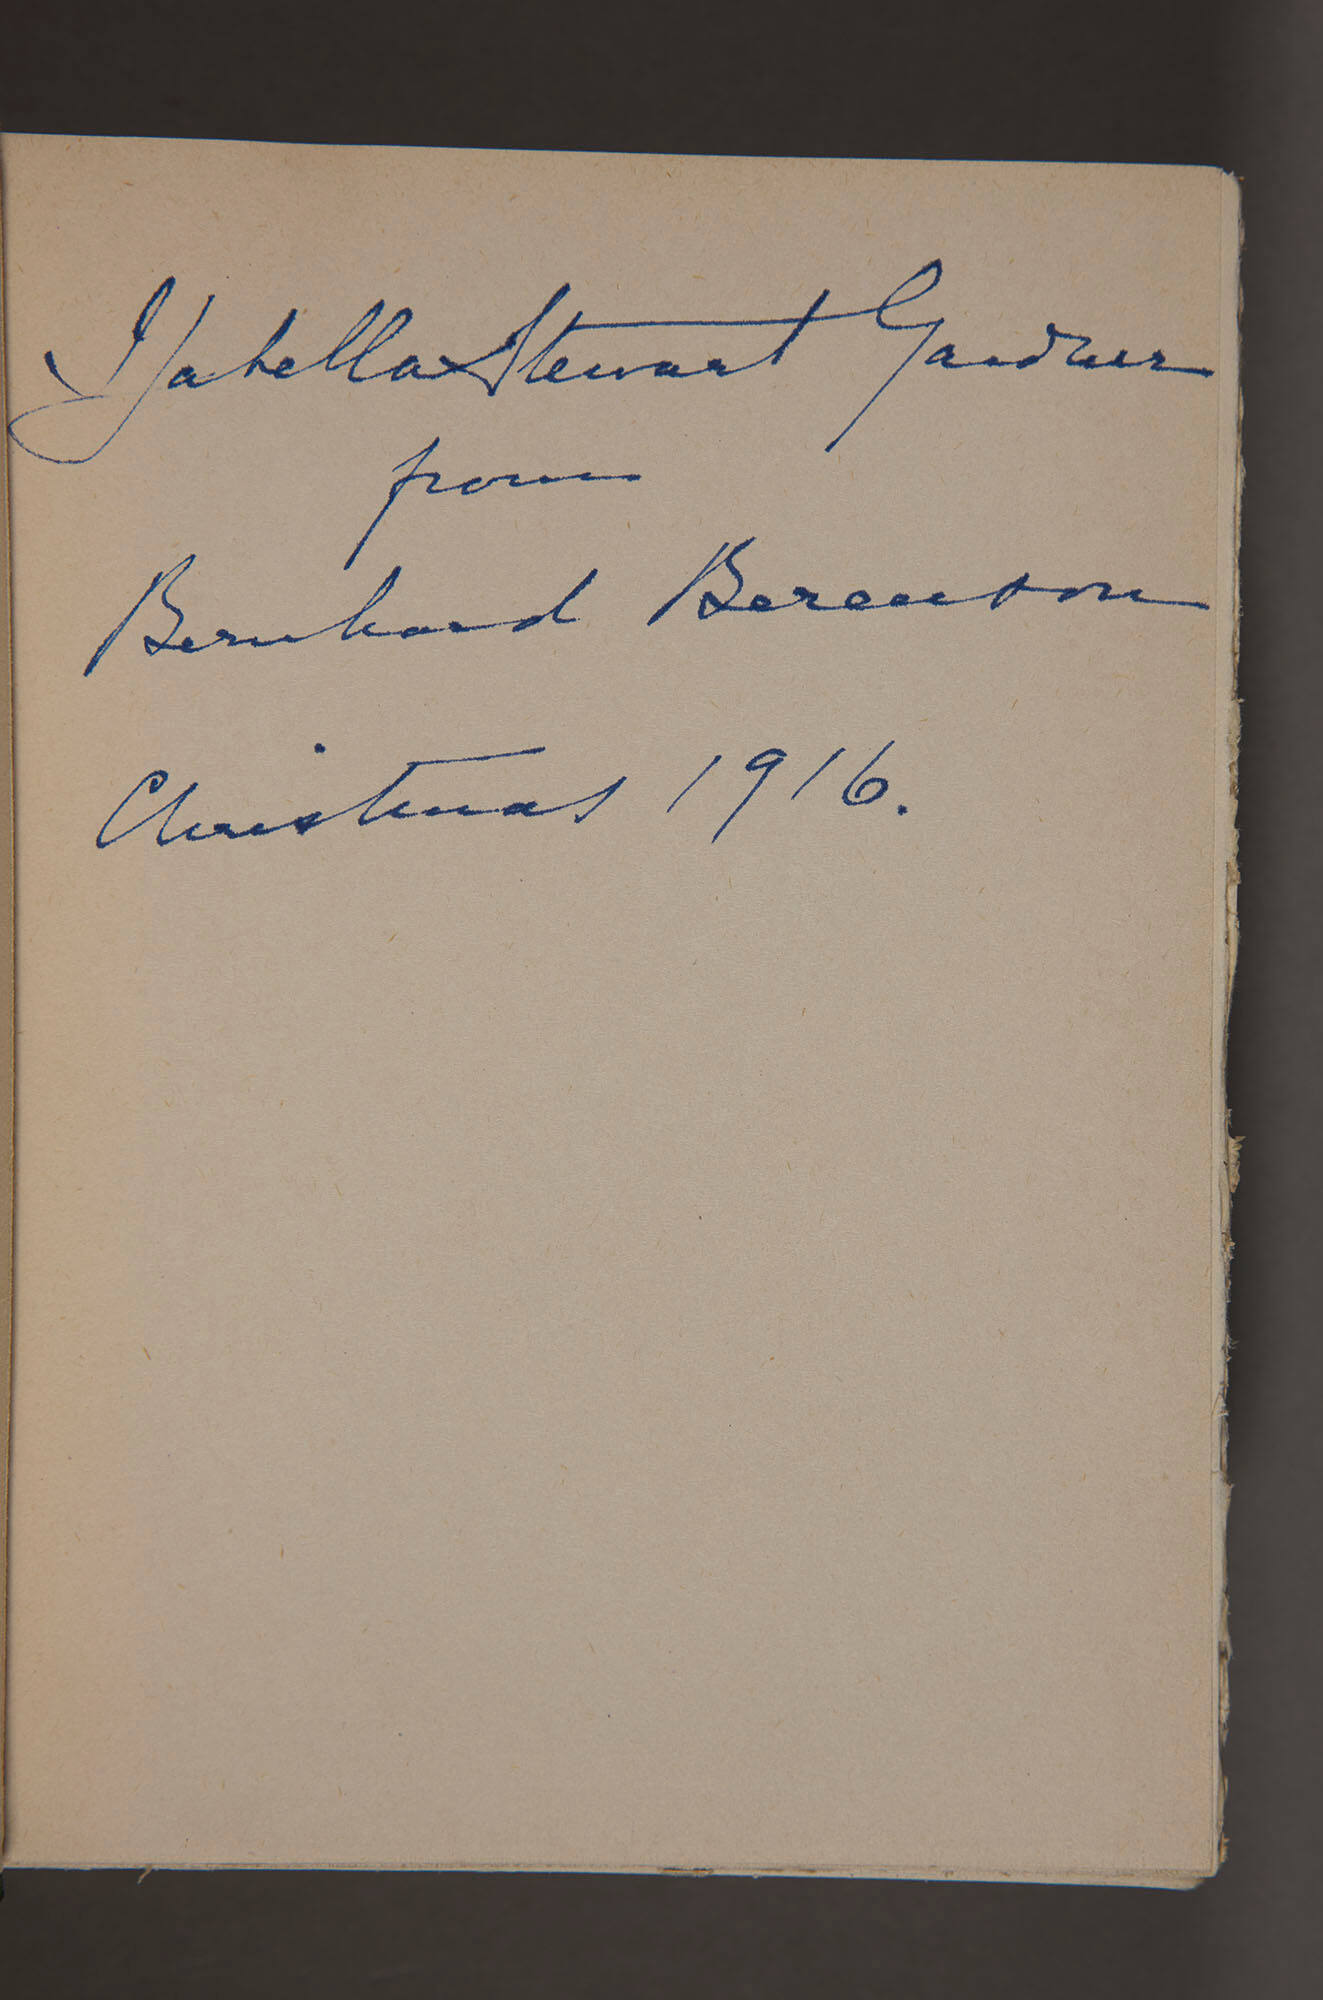 Isabella Stewart Gardner
from
Bernhard Berenson
Christmas 1916.